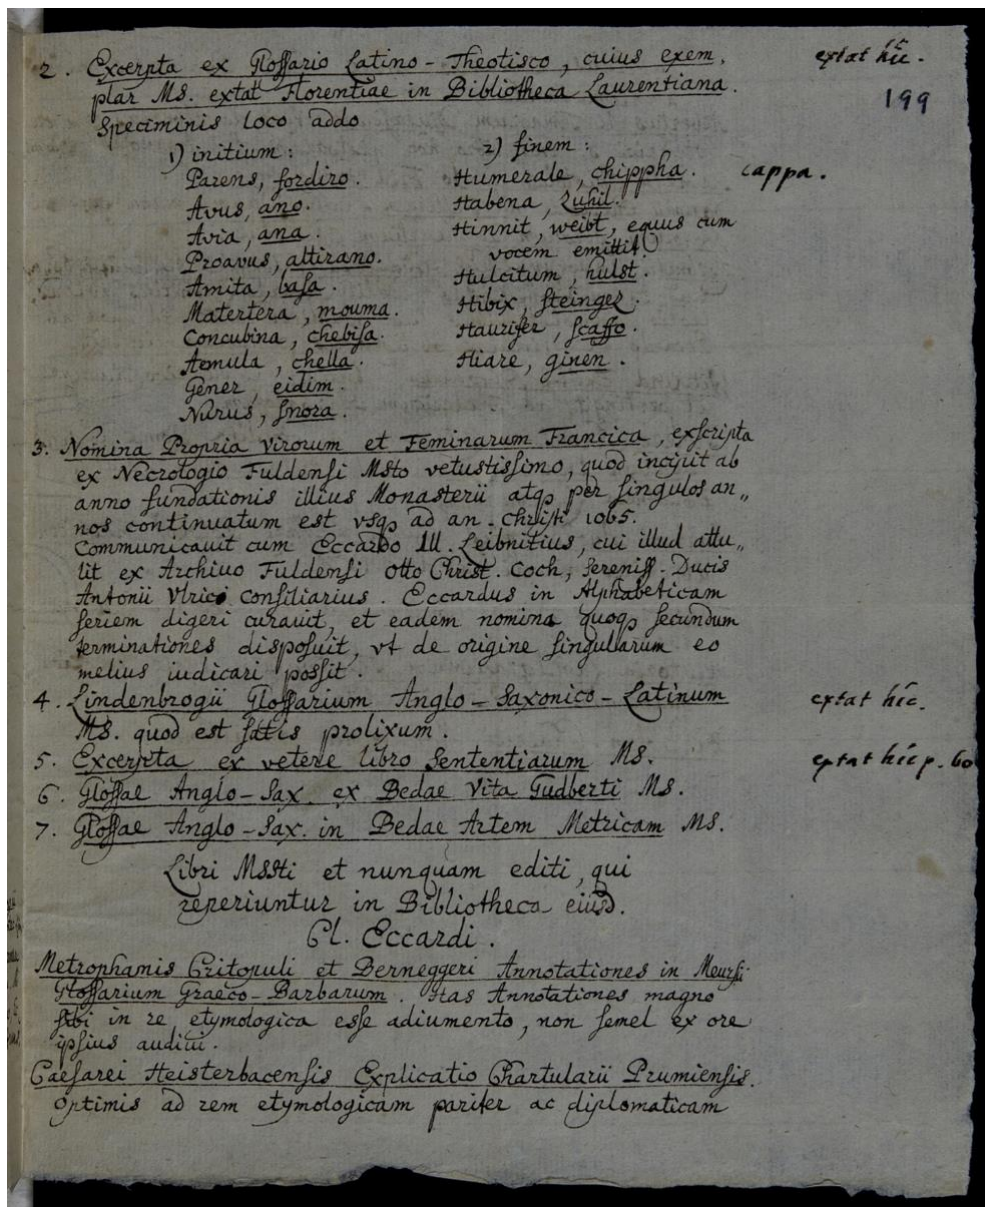 2. Excerpta ex Glossario Latino-Theotisco, cuius exem, extat hic.
plar MS. extat Florentiae in Bibliotheca Laurentiana.
199
Speciminis loco addo
1) initium: 2) finem:
Parens, fordiro. Humerale, chippha. cappa.
Avus, ano. Habena, Zuhil.
Avia, ana. Hinnit, weibt, equus cum
vocem emittit.
Proavus, altirano.
Amita, basa. Hulcitum, hulst.
Matertera, mouma. Hibix, steingez.
Concubina, chebisa. Haurifer, scaffo.
Aemula, chella. Hiare, ginen.
Gener, eidim.
Nurus, snora.
3. Nomina Propria Virorum et Feminarum Francica, exscripta
ex Necrologio Fuldensi Msto vetustissimo, quod incipit ab
anno fundationis illius Monasterii atqꝫ per singulos an„
nos continuatum est vsqꝫ ad an. Christi 1065.
Communicauit cum Eccardo Ill. Leibnitius, cui illud attu„
lit ex Archiuo Fuldensi Otto Christ. Coch, sereniss. Ducis
Antonii Vlrici consiliarius. Eccardus in Alphabeticam
seriem digeri curauit, et eadem nomina quoqꝫ secundum
terminationes disposuit, vt de origine singularum eo
melius iudicari possit.
4. Lindenbrogii Glossarium Anglo-Saxonico-Latinum extat hic.
MS. quod est satis prolixum.
5. Excerpta ex vetere libro Sententiarum MS. extat hic p. 60
6. Glossae Anglo-Sax. ex Bedae Vita Gudberti MS.
7. Glossae Anglo-Sax. in Bedae Artem Metricam MS.
Libri MSSti et nunquam editi, qui
reperiuntur in Bibliotheca eiusd.
Cl. Eccardi.
Metrophamis Critopuli et Berneggeri Annotationes in Meursi
Glossarium Graeco-Barbarum. Has Annotationes magno
sibi in re etymologica esse adiumento, non semel ex ore
ipsius audiui.
Caesarei Heisterbacensis Explicatio Chartularii Prumiensis.
Optimis ad rem etymologicam pariter ac diplomaticam